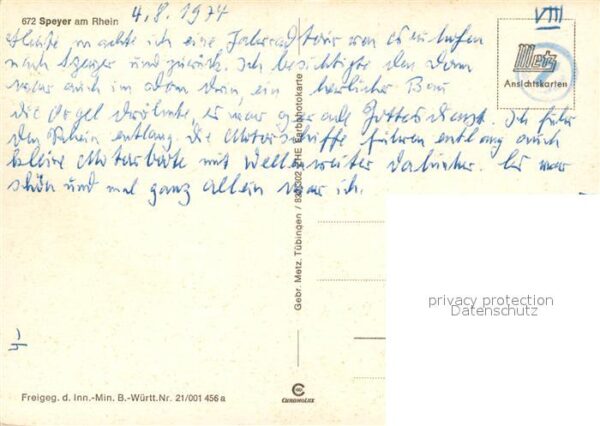 672 Speyer am Rhein
4.8.1974
VIII
Heute machte ich eine Fahrradtour von
nach Speyer und zurück. Ich besichtigte den Dom
war auch im Dom drin, ein herlicher Bau
die Orgel dröhnte, es war gerade Gottesdienst. Ich fuhr
den Rhein entlang. die Motorschiffe fuhren entlang auch
kleine Motorbote mit Wellenreiter dahinter. Es war
schön und mal ganz allein war ich.
Metz
Ansichtskarten
Gebr. Metz, Tübingen / ECHTE Farbphotokarte
privacy protection
Datenschutz
Freigeg. d. Inn.-Min. B.-Württ.Nr. 21/001 456 a
CHROMOLUX